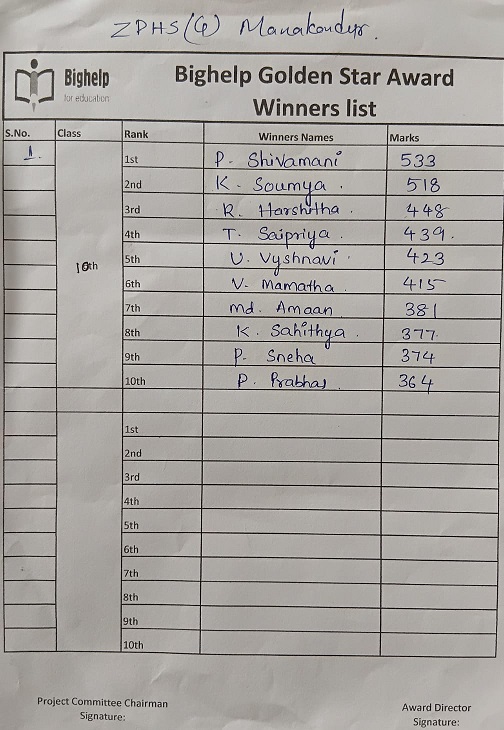 ZPHS (G) Manakondur.
Bighelp
for education
Bighelp Golden Star Award
Winners list
S.No. Class Rank Winners Names Marks
1. 1st P. Shivamani 533
2nd K. Soumya . 518
3rd R. Harshitha . 448
4th T. Saipriya . 439.
10th 5th U. Vyshnavi . 423
6th V. Mamatha . 415
7th Md. Amaan 381
8th K. Sahithya . 377.
9th P. Sneha 374
10th P. Prabhas . 364
1st
2nd
3rd
4th
5th
6th
7th
8th
9th
10th
Project Committee Chairman Award Director
Signature: Signature: